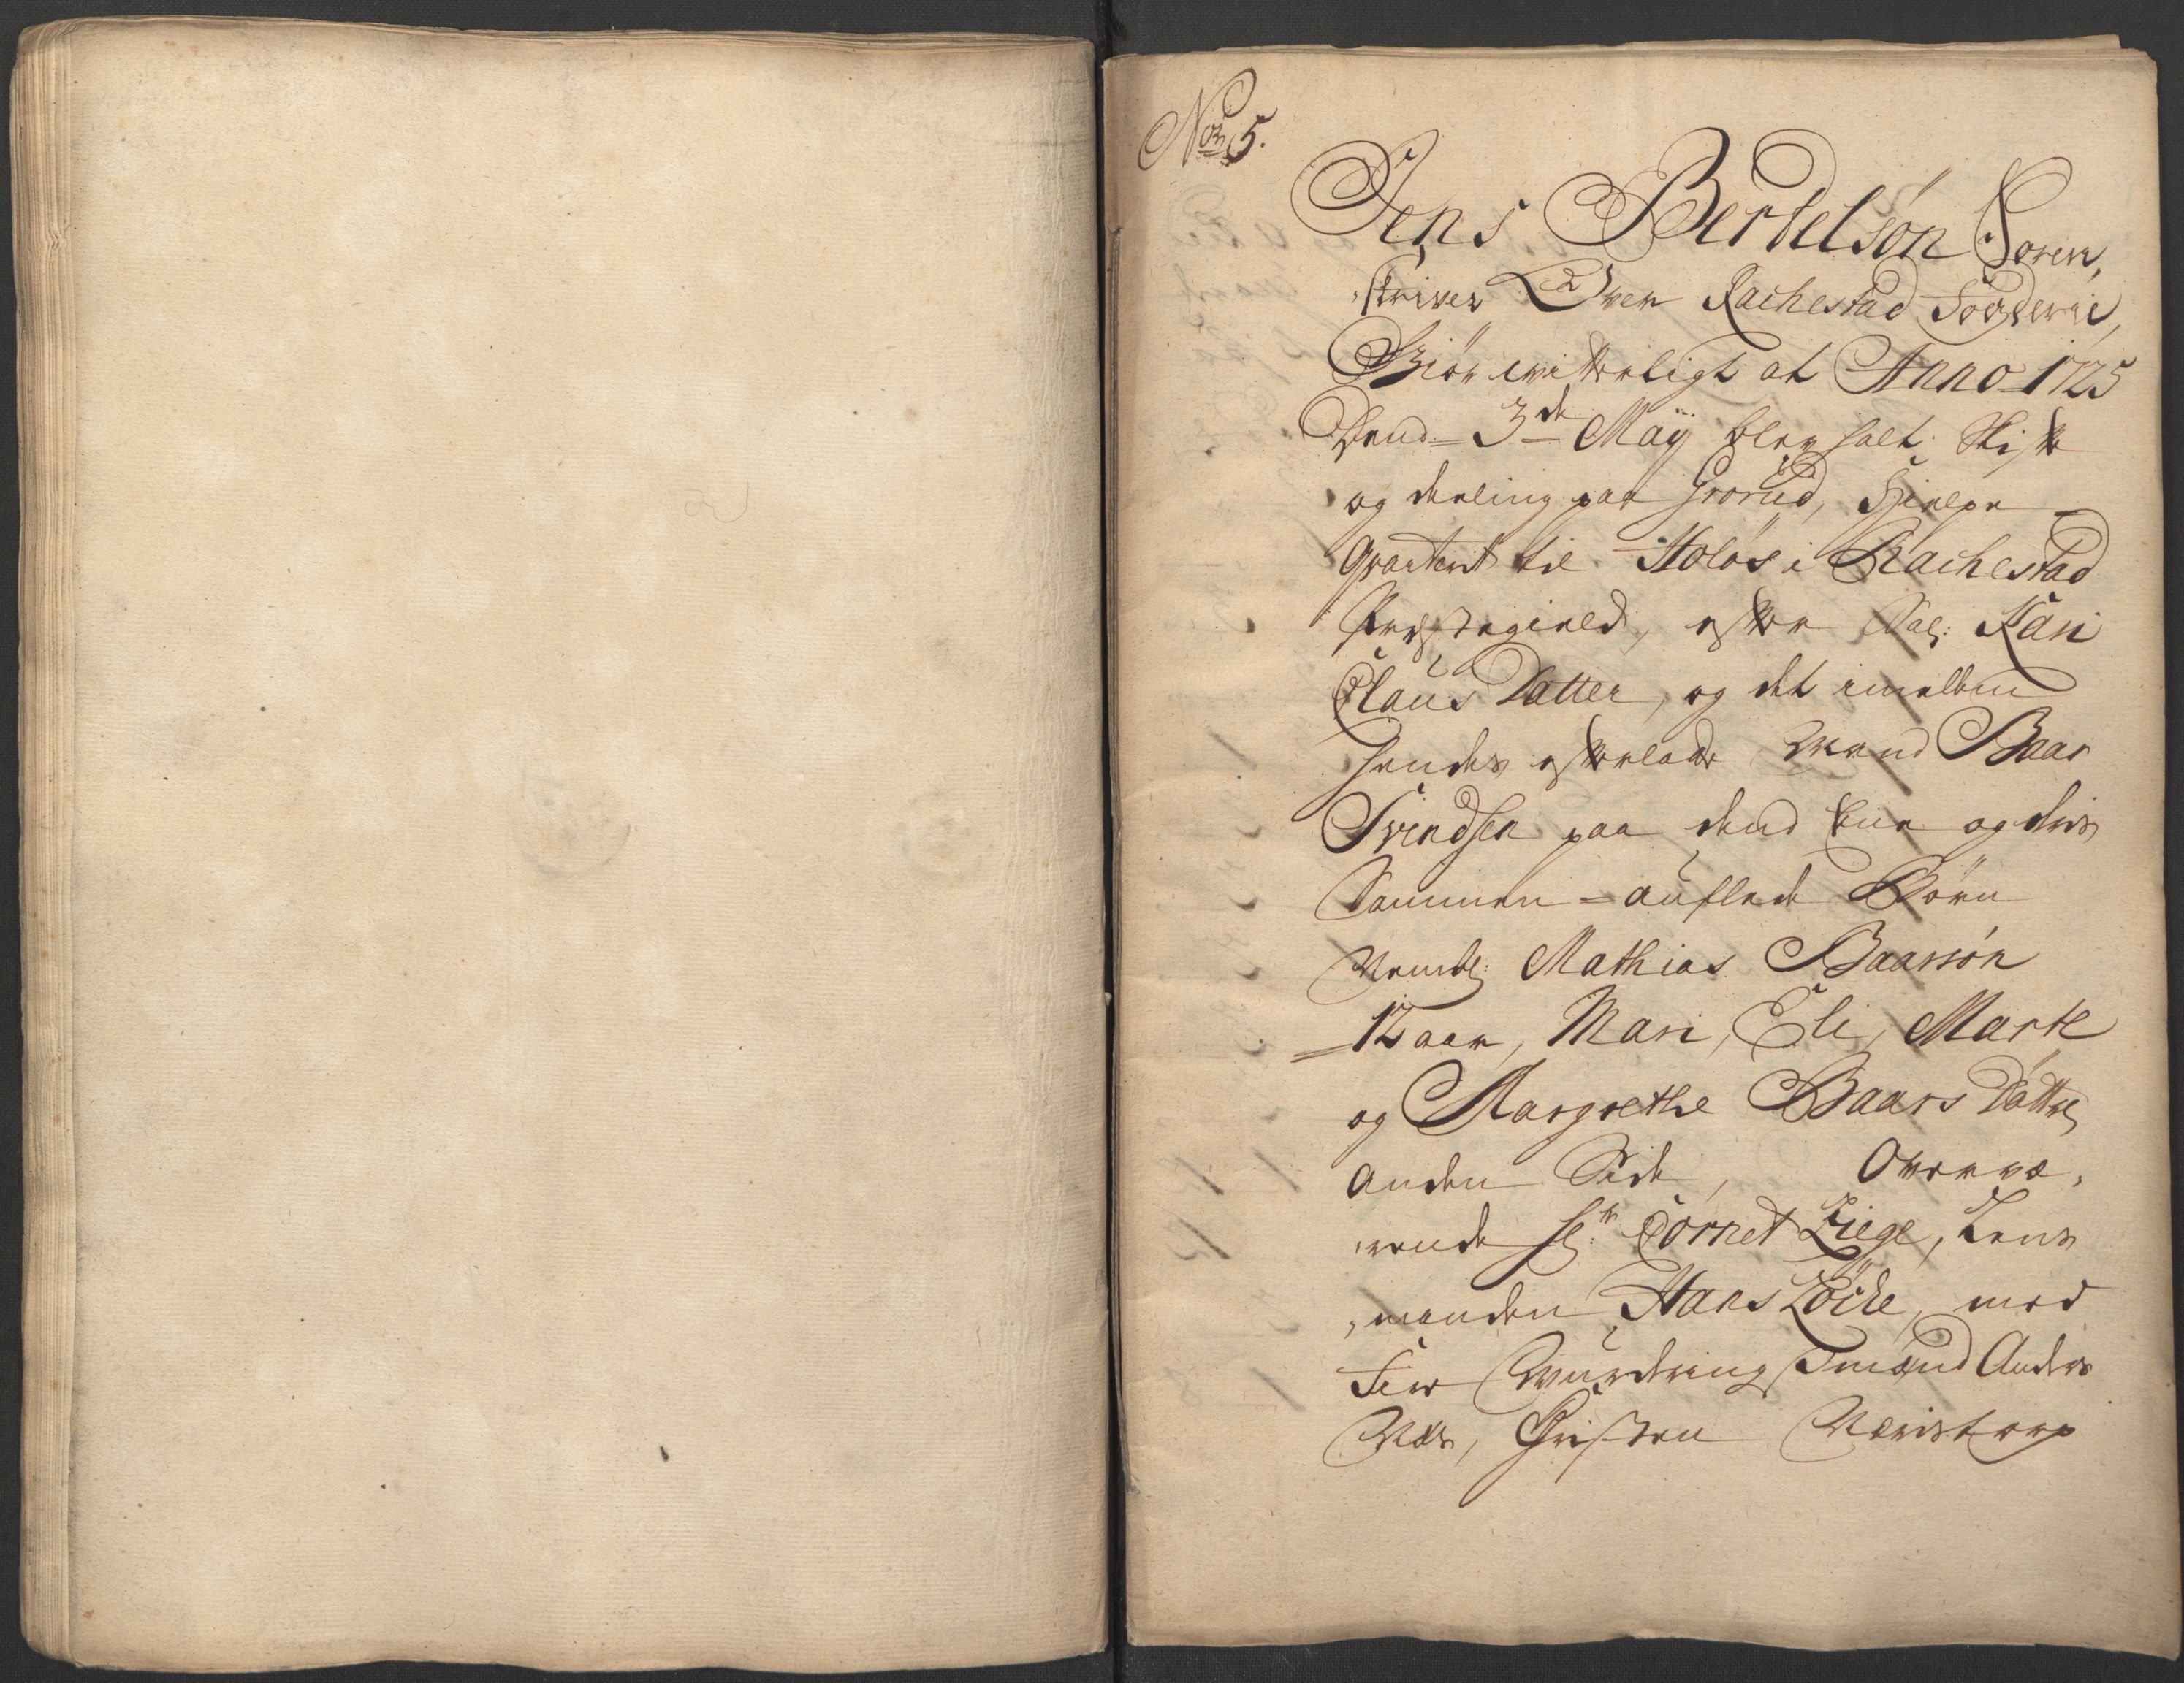 No 5.
Jens Bertelsøn Soren,
,skriver Over Rachestad Fogderie,
Giør witterligt at Anno 1725
Dend 3de Maij blev holt Skifte
og deeling paa Grorud, Hielpe
Qvarteret til Holøs i Rachestad
Prestegield, efter Sal: Kari
Claus Datter, og det imellem
hendes efterlatte Mand Baar
Svendsen paa dend Eene og deris
Sammen = auflede Børn
Nembl: Mathias Baarsøn
12 aar, Mari, Eli, Marte
og Margrethe Baars Døttre
Anden Side, Overvæ,
,rende Hr: Cornet Ziege, Lens
,manden Hans Løche, med
Fire Vurderings Mænd Anders
Næs, Christen